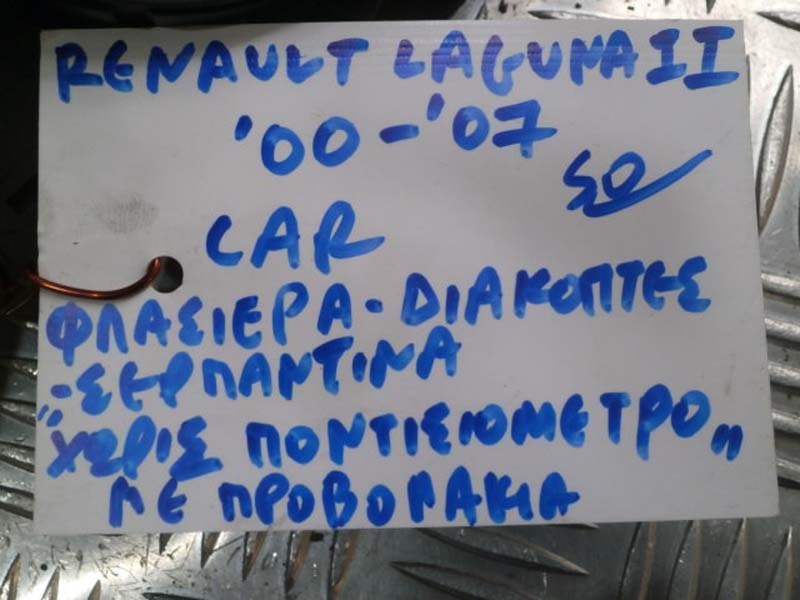 RENAULT LAGUNA II
'00-'07
CAR
ΦΛΑΣΙΕΡΑ-ΔΙΑΚΟΠΤΕΣ
-ΣΕΡΠΑΝΤΙΝΑ
"ΧΩΡΙΣ ΠΟΝΤΙΣΙΟΜΕΤΡΟ"
ΜΕ ΠΡΟΒΟΛΑΚΙΑ